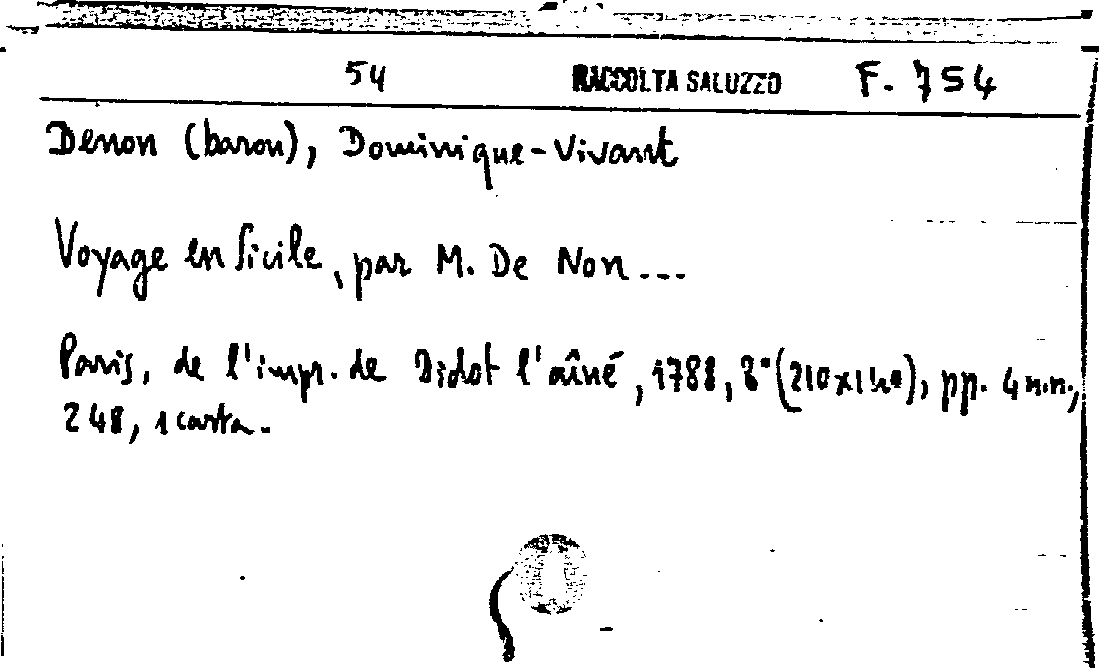 54 RACCOLTA SALUZZO F. 754
Denon (baron), Dominique-Vivant
Voyage en Sicile, par M. De Non...
Paris, de l'impr. de Didot l'aîné, 1788, 8° (210x140), pp. 4 n.n.,
248, 1 carta.